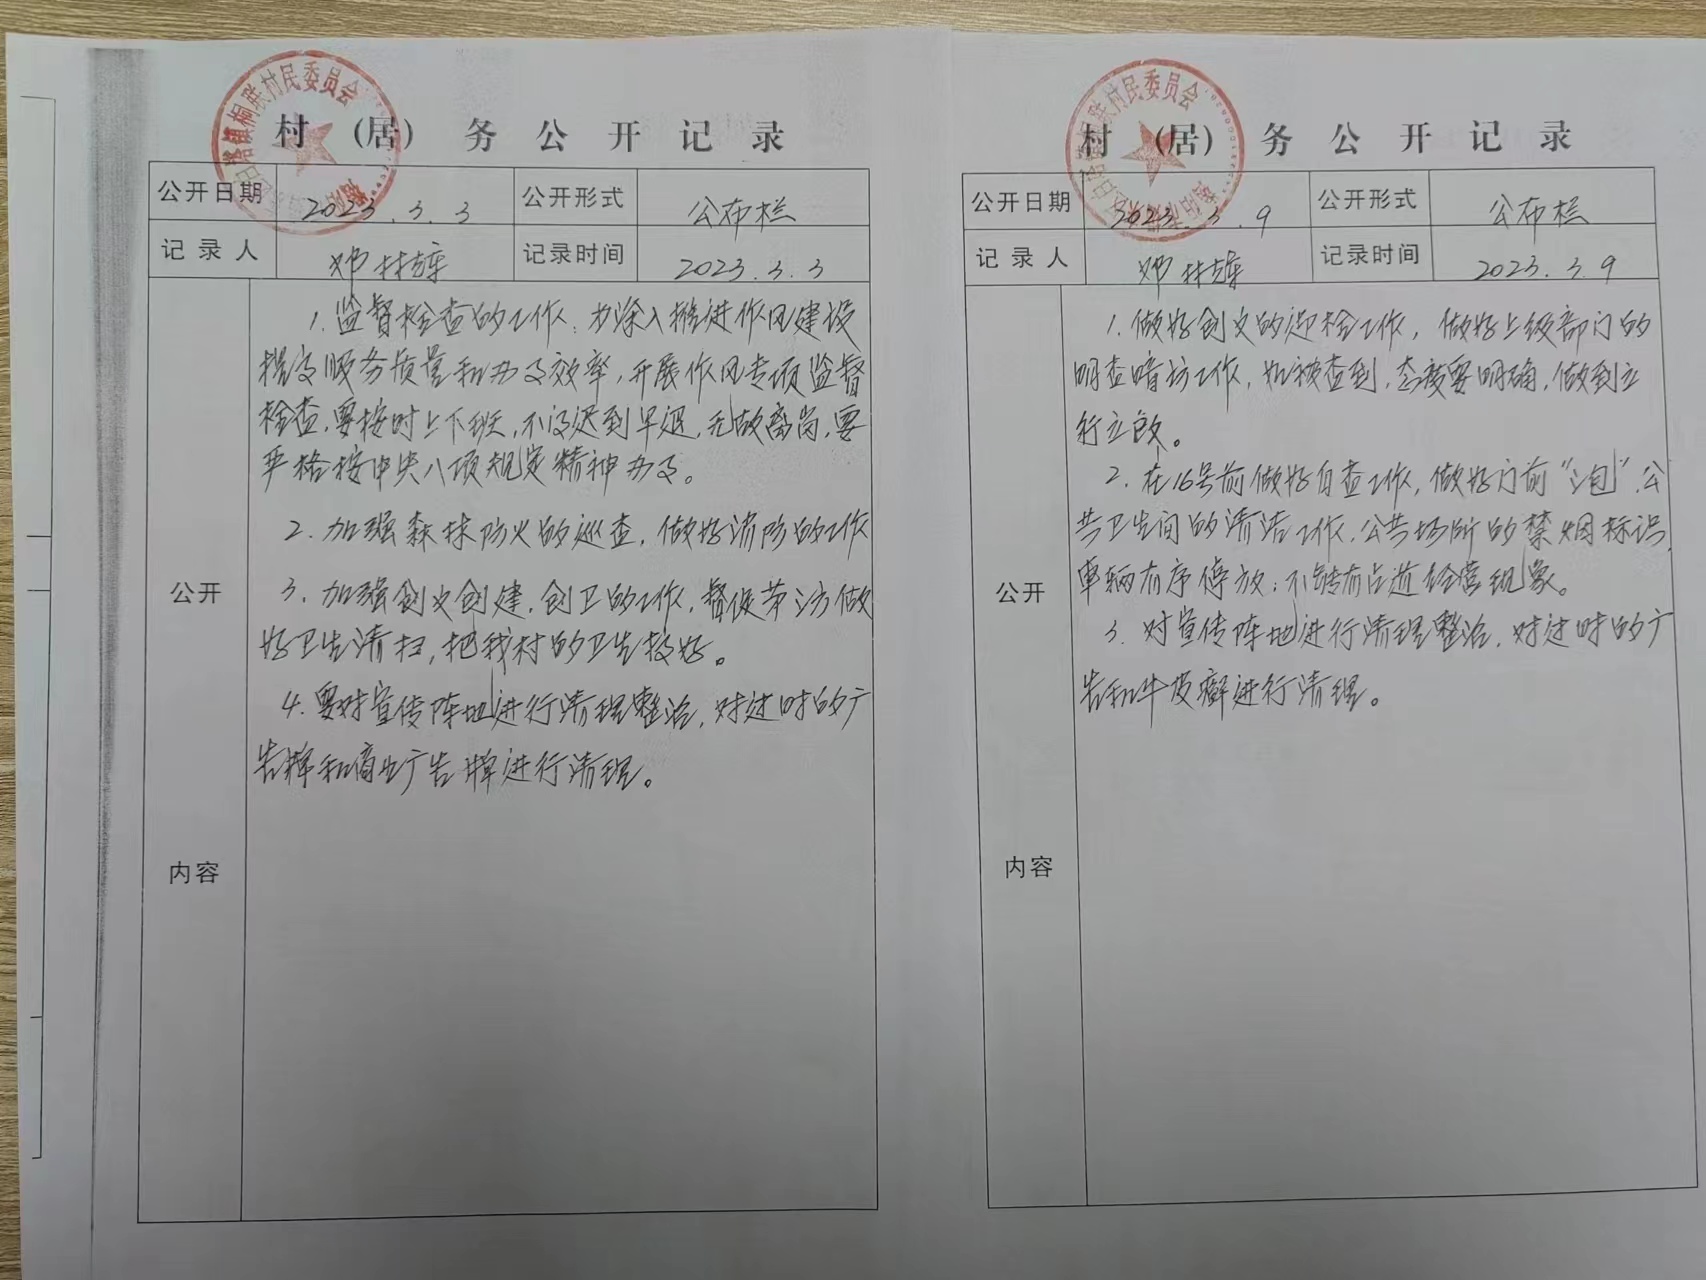 村(居)务公开记录
公开日期 2023.3.3 公开形式 公布栏
记录人 邓林 记录时间 2023.3.3
公开
内容
1.监督检查的工作:为深入推进作风建设
提高服务质量和办事效率,开展作风专项监督
检查,要按时上下班,不得迟到早退,无故离岗,要
严格按中央八项规定精神办事。
2.加强森林防火的巡查,做好消防的工作
3.加强创文创建,创卫的工作,督促劳 做
好卫生清扫,把我村的卫生搞好。
4.要对宣传阵地进行清理整治,对过时的广
告牌和商业广告牌进行清理。
桐联村民委员会
村(居)务公开记录
公开日期 2023.3.9 公开形式 公布栏
记录人 邓林 记录时间 2023.3.9
公开
内容
1.做好创文的迎检工作,做好上级部门的
明查暗访工作,如被查到,态度要明确,做到立
行立改。
2.在16号前做好自查工作,做好门前“三包”,公
共卫生间的清洁工作,公共场所的禁烟标识,
车辆有序停放;不能有占道经营现象。
3.对宣传阵地进行清理整治,对过时的广
告和牛皮癣进行清理。
桐联村民委员会